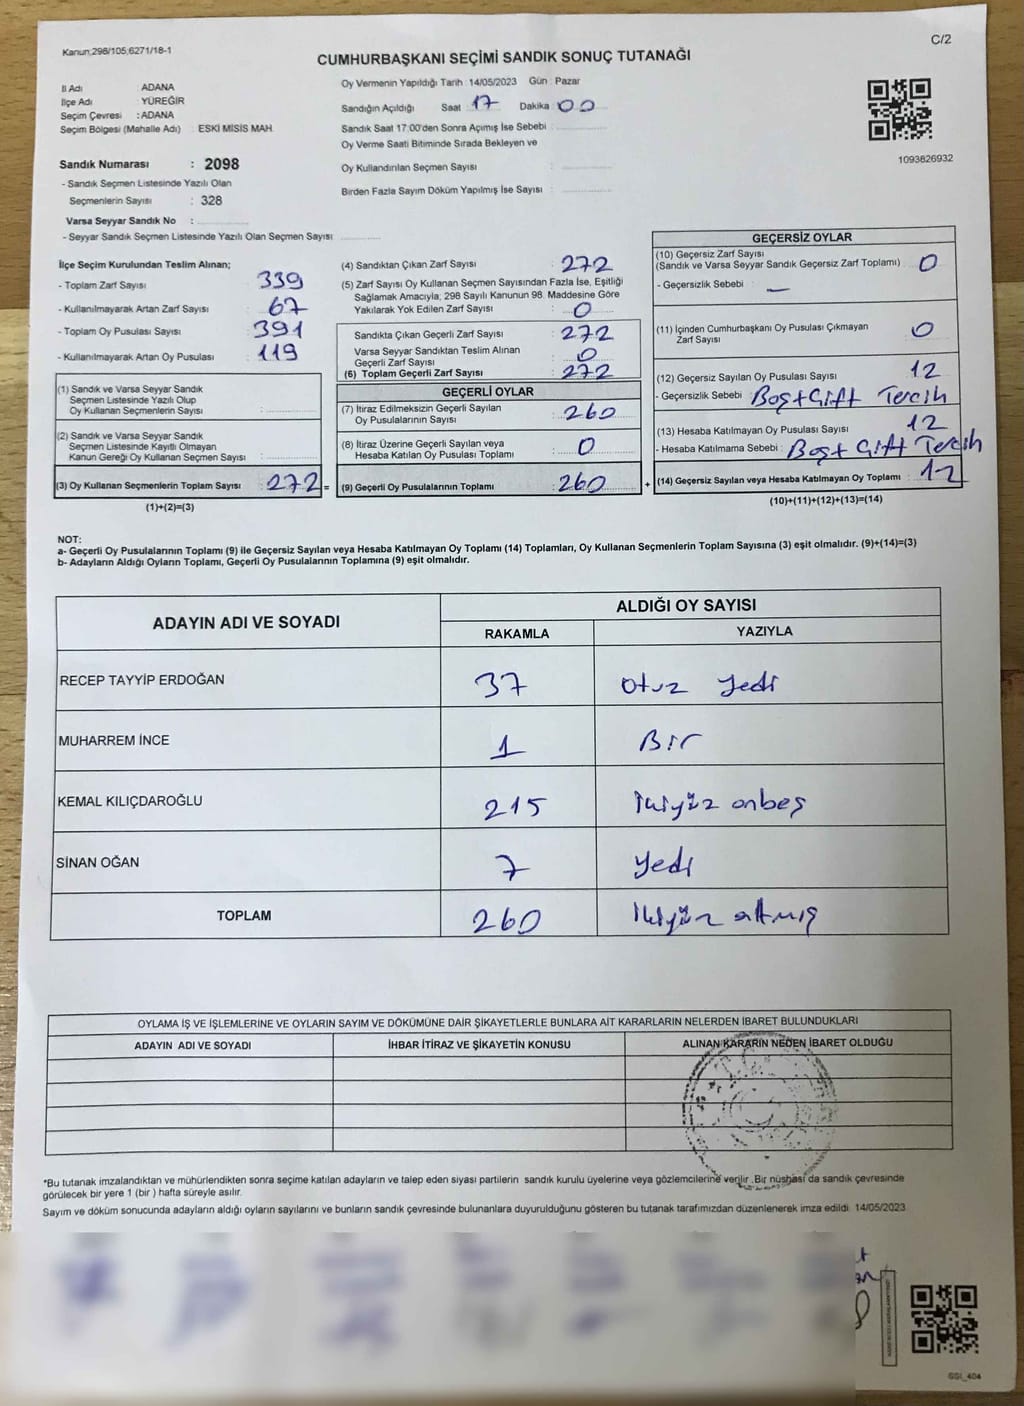 Kanun;298/105,6271/18-1
C/2
CUMHURBAŞKANI SEÇİMİ SANDIK SONUÇ TUTANAĞI
İl Adı ADANA
İlçe Adı : YÜREĞİR
Seçim Çevresi : ADANA
Seçim Bölgesi (Mahalle Adı) : ESKİ MİSİS MAH.
Sandık Numarası : 2098
- Sandık Seçmen Listesinde Yazılı Olan
Seçmenlerin Sayısı : 328
Varsa Seyyar Sandık No :
- Seyyar Sandık Seçmen Listesinde Yazılı Olan Seçmen Sayısı
Oy Vermenin Yapıldığı Tarih : 14/05/2023 Gün : Pazar
Sandığın Açıldığı Saat : 17 Dakika : 00
Sandık Saat 17:00'den Sonra Açımış İse Sebebi :
Oy Verme Saati Bitiminde Sırada Bekleyen ve
Oy Kullandırılan Seçmen Sayısı :
Birden Fazla Sayım Döküm Yapılmış İse Sayısı :
1093826932
İlçe Seçim Kurulundan Teslim Alınan;
- Toplam Zarf Sayısı : 339
- Kullanılmayarak Artan Zarf Sayısı : 67
- Toplam Oy Pusulası Sayısı : 391
- Kullanılmayarak Artan Oy Pusulası : 119
(1) Sandık ve Varsa Seyyar Sandık
Seçmen Listesinde Yazılı Olup
Oy Kullanan Seçmenlerin Sayısı :
(2) Sandık ve Varsa Seyyar Sandık
Seçmen Listesinde Kayıtlı Olmayan
Kanun Gereği Oy Kullanan Seçmen Sayısı :
(3) Oy Kullanan Seçmenlerin Toplam Sayısı : 272 =
(1)+(2)=(3)
(4) Sandıktan Çıkan Zarf Sayısı : 272
(5) Zarf Sayısı Oy Kullanan Seçmen Sayısından Fazla İse, Eşitliği
Sağlamak Amacıyla; 298 Sayılı Kanunun 98. Maddesine Göre
Yakılarak Yok Edilen Zarf Sayısı : 0
Sandıkta Çıkan Geçerli Zarf Sayısı : 272
Varsa Seyyar Sandıktan Teslim Alınan
Geçerli Zarf Sayısı : 0
(6) Toplam Geçerli Zarf Sayısı : 272
GEÇERLİ OYLAR
(7) İtiraz Edilmeksizin Geçerli Sayılan
Oy Pusulalarının Sayısı : 260
(8) İtiraz Üzerine Geçerli Sayılan veya
Hesaba Katılan Oy Pusulası Toplamı : 0
(9) Geçerli Oy Pusulalarının Toplamı : 260 +
GEÇERSİZ OYLAR
(10) Geçersiz Zarf Sayısı
(Sandık ve Varsa Seyyar Sandık Geçersiz Zarf Toplamı) : 0
- Geçersizlik Sebebi : —
(11) İçinden Cumhurbaşkanı Oy Pusulası Çıkmayan
Zarf Sayısı : 0
(12) Geçersiz Sayılan Oy Pusulası Sayısı : 12
- Geçersizlik Sebebi : Boş+Çift Tercih
(13) Hesaba Katılmayan Oy Pusulası Sayısı : 12
- Hesaba Katılmama Sebebi : Boş+Çift Tercih
(14) Geçersiz Sayılan veya Hesaba Katılmayan Oy Toplamı : 12
(10)+(11)+(12)+(13)=(14)
NOT:
a- Geçerli Oy Pusulalarının Toplamı (9) ile Geçersiz Sayılan veya Hesaba Katılmayan Oy Toplamı (14) Toplamları, Oy Kullanan Seçmenlerin Toplam Sayısına (3) eşit olmalıdır. (9)+(14)=(3)
b- Adayların Aldığı Oyların Toplamı, Geçerli Oy Pusulalarının Toplamına (9) eşit olmalıdır.
ADAYIN ADI VE SOYADI
ALDIĞI OY SAYISI
RAKAMLA YAZIYLA
RECEP TAYYİP ERDOĞAN 37 Otuz Yedi
MUHARREM İNCE 1 Bir
KEMAL KILIÇDAROĞLU 215 İkiyüz onbeş
SİNAN OĞAN 7 Yedi
TOPLAM 260 İkiyüz altmış
OYLAMA İŞ VE İŞLEMLERİNE VE OYLARIN SAYIM VE DÖKÜMÜNE DAİR ŞİKAYETLERLE BUNLARA AİT KARARLARIN NELERDEN İBARET BULUNDUKLARI
ADAYIN ADI VE SOYADI İHBAR İTİRAZ VE ŞİKAYETİN KONUSU ALINAN KARARIN NEDEN İBARET OLDUĞU
*Bu tutanak imzalandıktan ve mühürlendikten sonra seçime katılan adayların ve talep eden siyasi partilerin sandık kurulu üyelerine veya gözlemcilerine verilir. Bir nüshası da sandık çevresinde
görülecek bir yere 1 (bir ) hafta süreyle asılır.
Sayım ve döküm sonucunda adayların aldığı oyların sayılarını ve bunların sandık çevresinde bulunanlara duyurulduğunu gösteren bu tutanak tarafımızdan düzenlenerek imza edildi. 14/05/2023
SSI_404